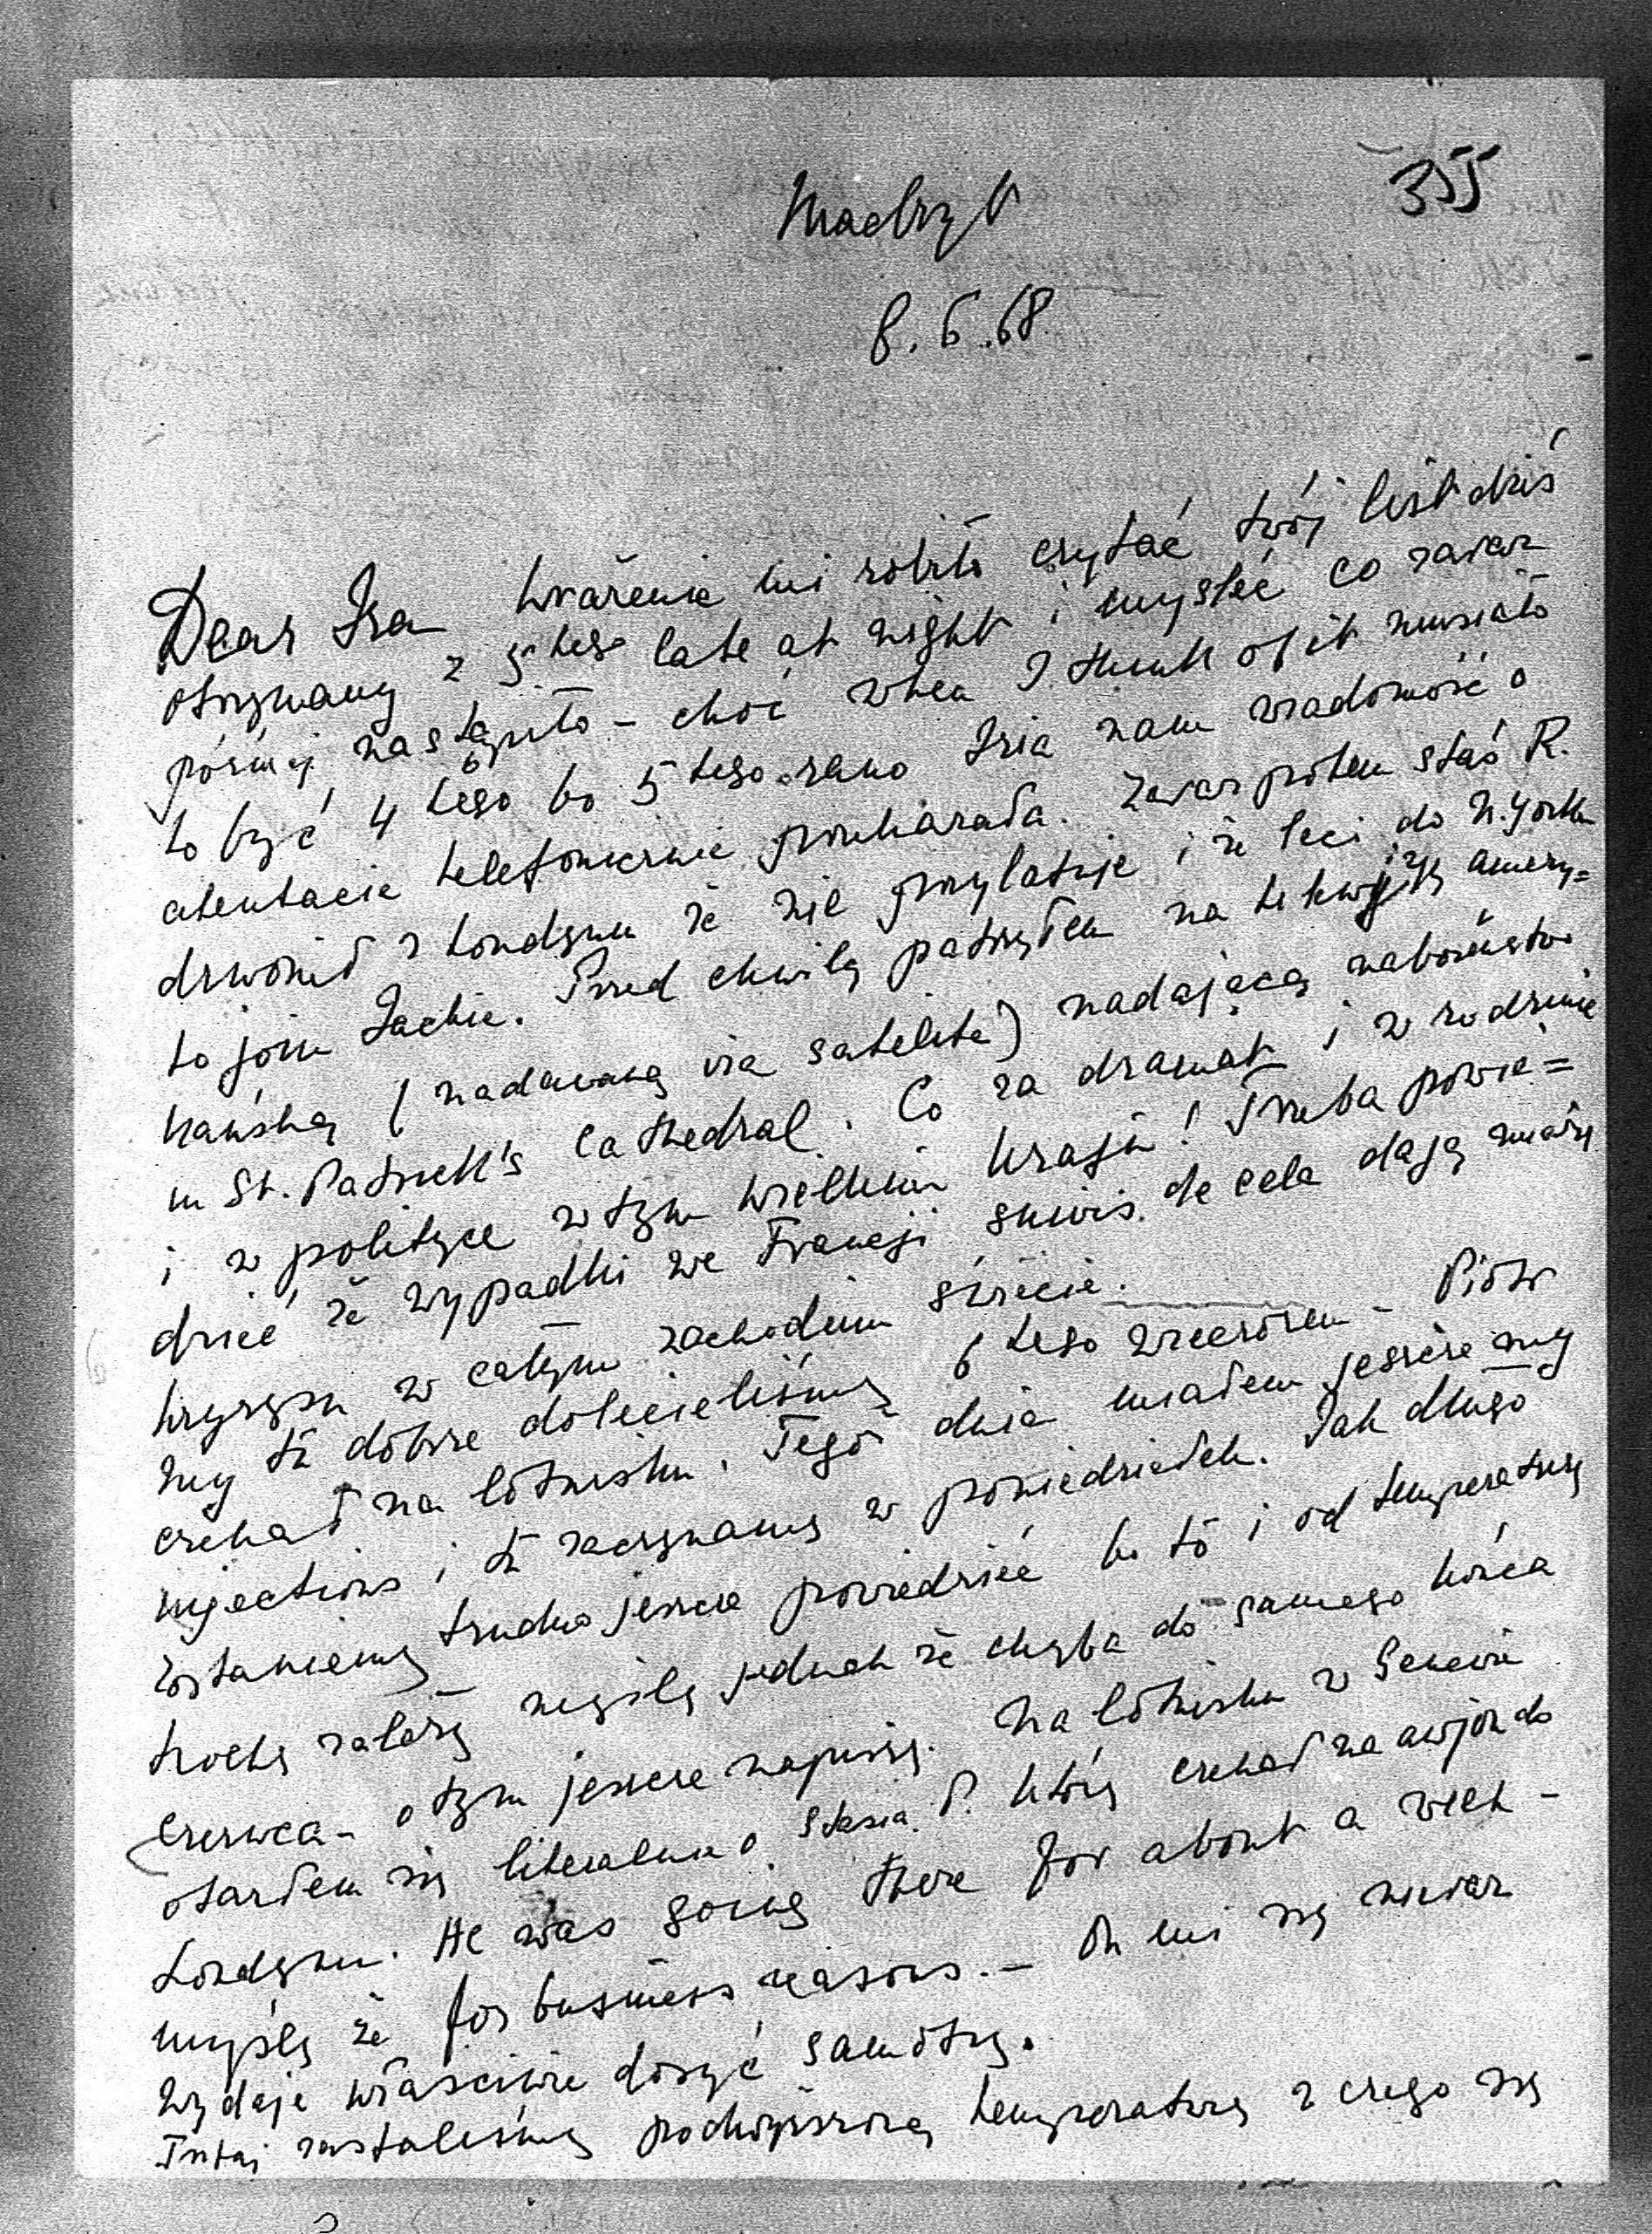 355
Madryt
8.6.68
Dear Isa wrażenie mi robiło czytać twój list dziś
otrzymany z 5tego late at night i myśleć co zaraz
później nastąpiło – choć when I think of it musiało
to być 4tego bo 5tego rano Isia nam wiadomość o
atentacie telefonicznie przekazała. Zaraz potem Staś R.
dzwonił z Londynu że nie przylatuje i że leci do N. Yorku
to join Jackie. Przed chwilą patrzyłem na telewizję amery=
kańską (nadawaną via satelita) nadającą nabożeństwo
w St. Patrick's Cathedral. Co za dramat i w rodzinie
i w polityce w tym wielkim kraju! Trzeba powie=
dzieć że wypadki we Francji suivis de cela dają miarę
kryzysu w całym zachodnim świecie.
My tu dobrze dolecieliśmy 6tego wieczorem – Piotr
czekał na lotnisku. Tego dnia miałem jeszcze my
injections i tu zaczynamy w poniedziałek. Jak długo
zostaniemy trudno jeszcze powiedzieć bo to i od temperatury
trochę zależy myślę jednak że chyba do samego końca
czerwca – o tym jeszcze napiszę. Na lotnisku w Genewie
otarłem się literalnie o Stasia P. który czekał na avion do
Londynu. He was going there for about a week –
myślę że for business reasons. – On mi się nieraz
wydaje właściwie dosyć samotny.
Tutaj zastaliśmy podwyższoną temperaturę z czego się